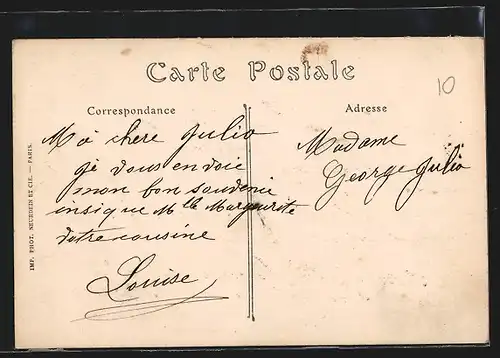 Carte Postale
10
Correspondance
Adresse
Ma chere Julia
je vous envoie
mon bon souvenir
insique Mlle Marguerite
votre cousine
Louise
Madame
George Julia
IMP. PHOT. NEURDEIN ET CIE. — PARIS.